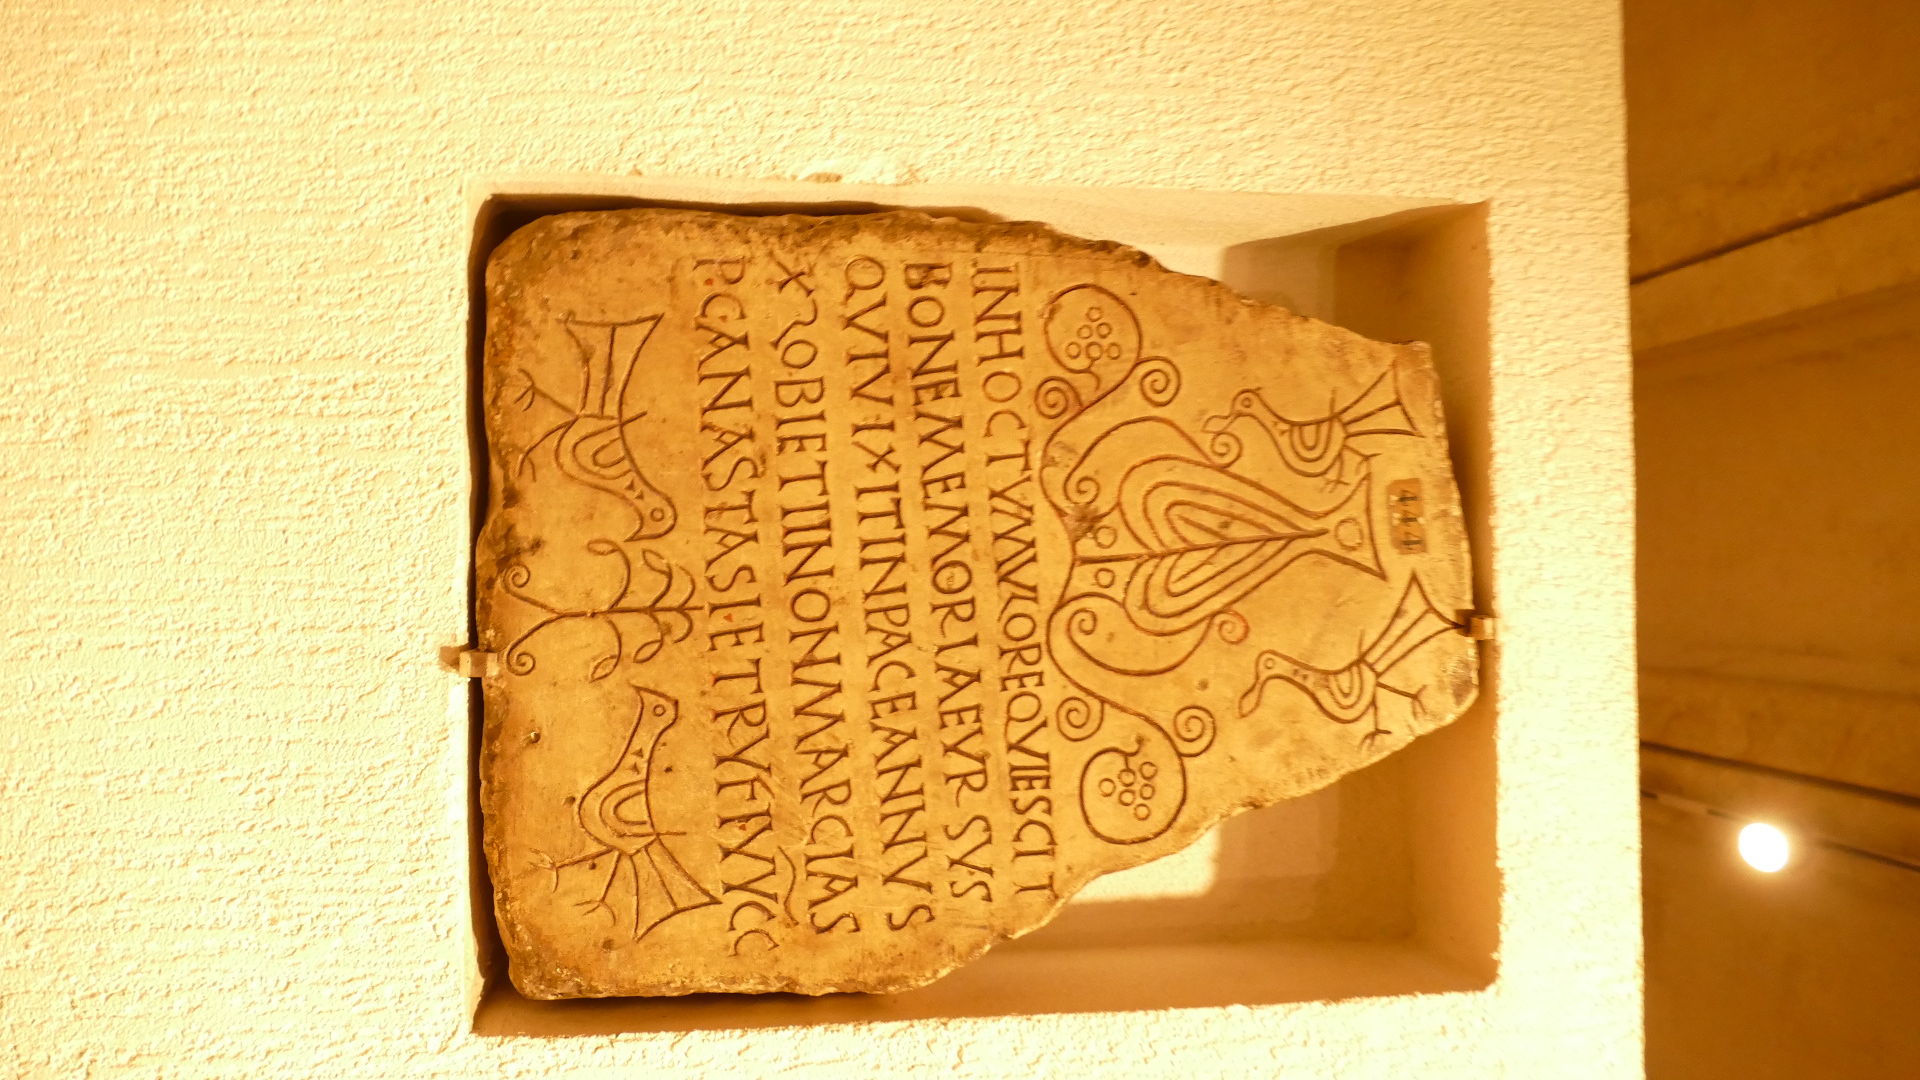 444
IN HOC TVMVLO REQVIESCIT
BONE MEMORIAE VRSVS
QVI VIXIT IN PACE ANNVS
XϚ OBIET II NON MARCIAS
P C ANASTASI ET RVFI VV CC